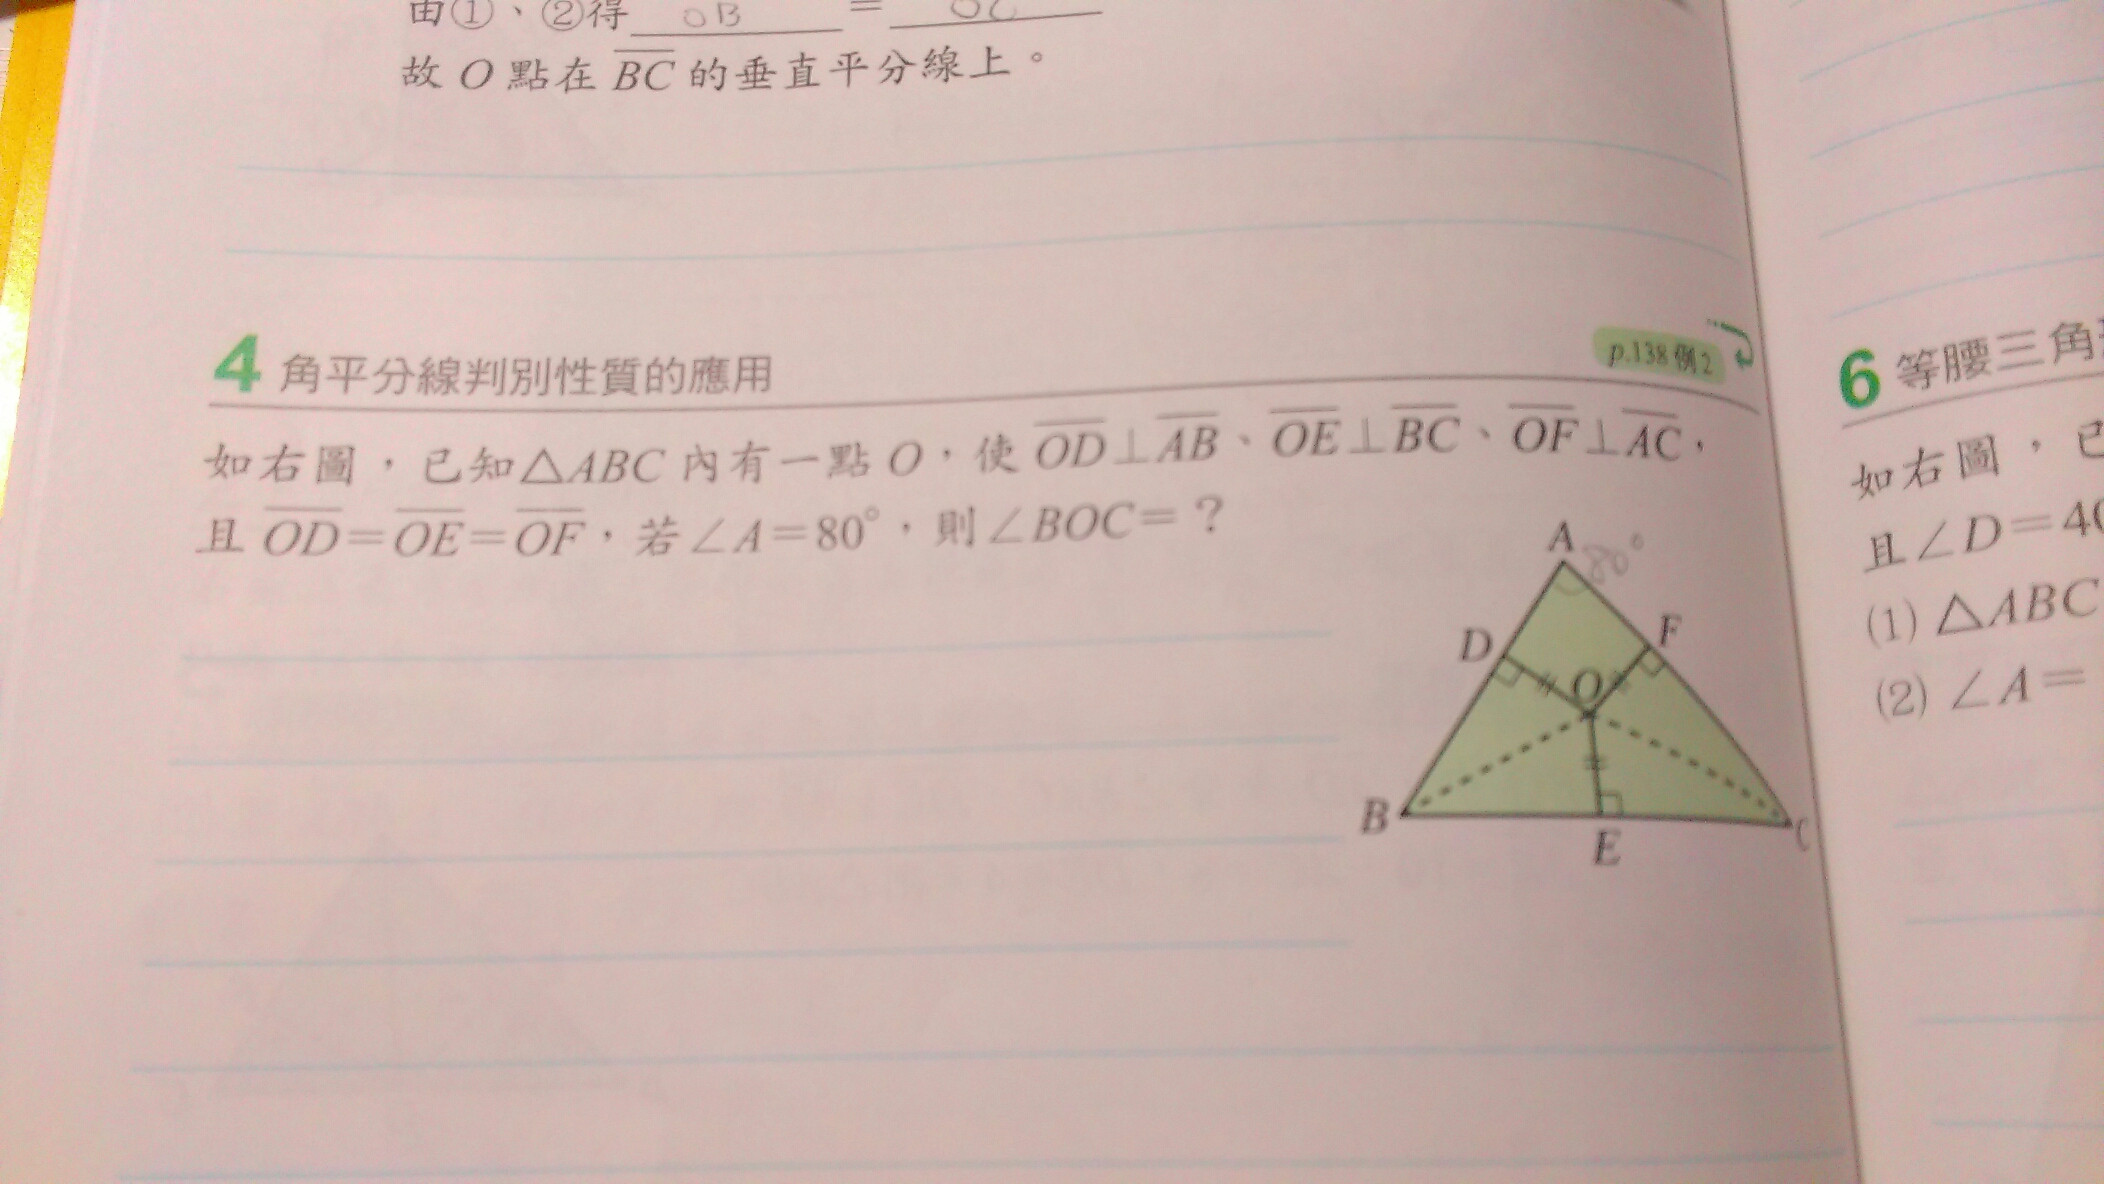 由①、②得 OB = OC
故 O 點在 BC 的垂直平分線上。
4 角平分線判別性質的應用
p.138 例2
如右圖，已知△ABC 內有一點 O，使 OD⊥AB、OE⊥BC、OF⊥AC，
且 OD＝OE＝OF，若∠A＝80°，則∠BOC＝？
A 80°
D
F
O
B
E
C
6 等腰三角
如右圖，已
且∠D＝40
(1) △ABC
(2) ∠A＝